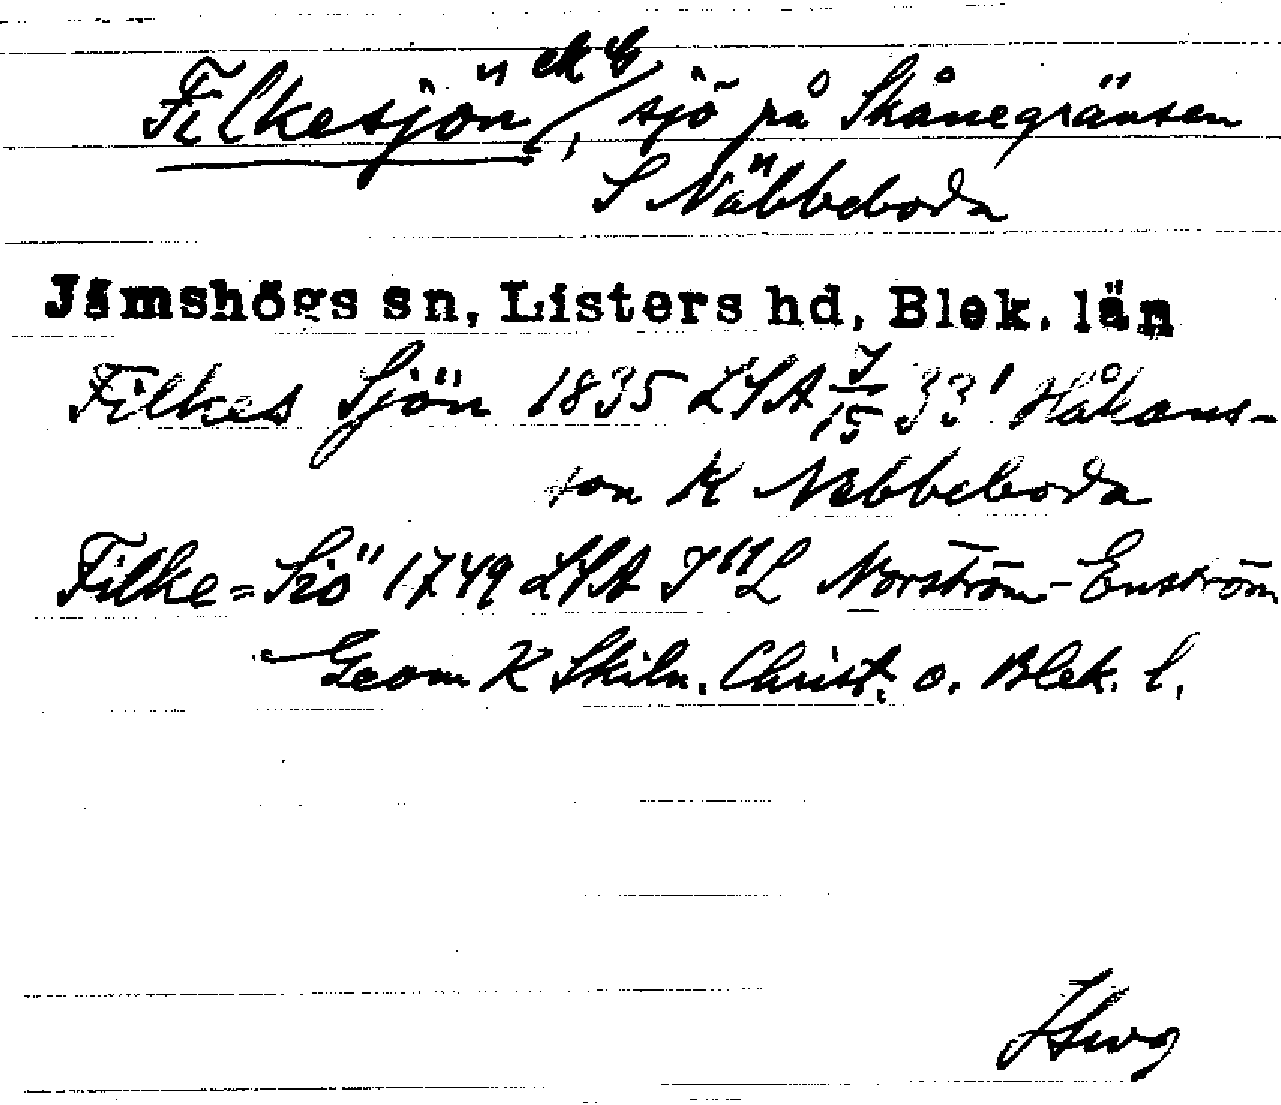 Filkesjön ek G, sjö på Skånegränsen
S Näbbeboda
Jämshögs sn, Listers hd, Blek. län
Filkes Sjön 1835 LSA J/15 33' Håkans-
son K Nebbeboda
Filke=Siö 1749 LSA L Norström-Enström
Geom K Skiln. Christ. o. Blek. l.